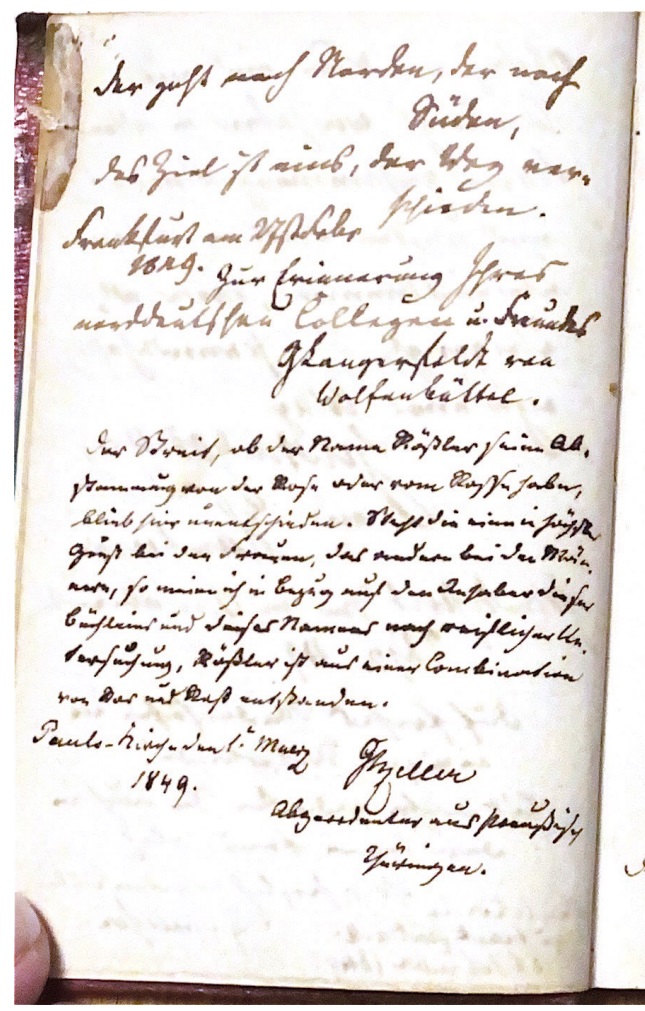 der geht nach Norden, der nach
Süden,
das Ziel ist eins, der Weg ver-
schieden.
Frankfurt am
1849. Zur Erinnerung Ihres
norddeutschen Collegen u. Freundes
GLangerfeldt von
Wolfenbüttel.
Der Streit, ob der Name Rößler seine Ab-
stammung von der Rose oder vom Rosse habe,
blieb hier unentschieden. Steht die eine in höchster
Gunst bei den Frauen, das andere bei den Män-
nern, so meine ich in Bezug auf den Inhaber dieses
Büchleins und dieses Namens nach reiflicher Un-
tersuchung, Rößler ist aus einer Combination
von Ros und Roß entstanden.
Pauls-Kirche den 1t. Maerz
1849.
Zeller
Abgeordneter aus Preußisch
Thüringen.